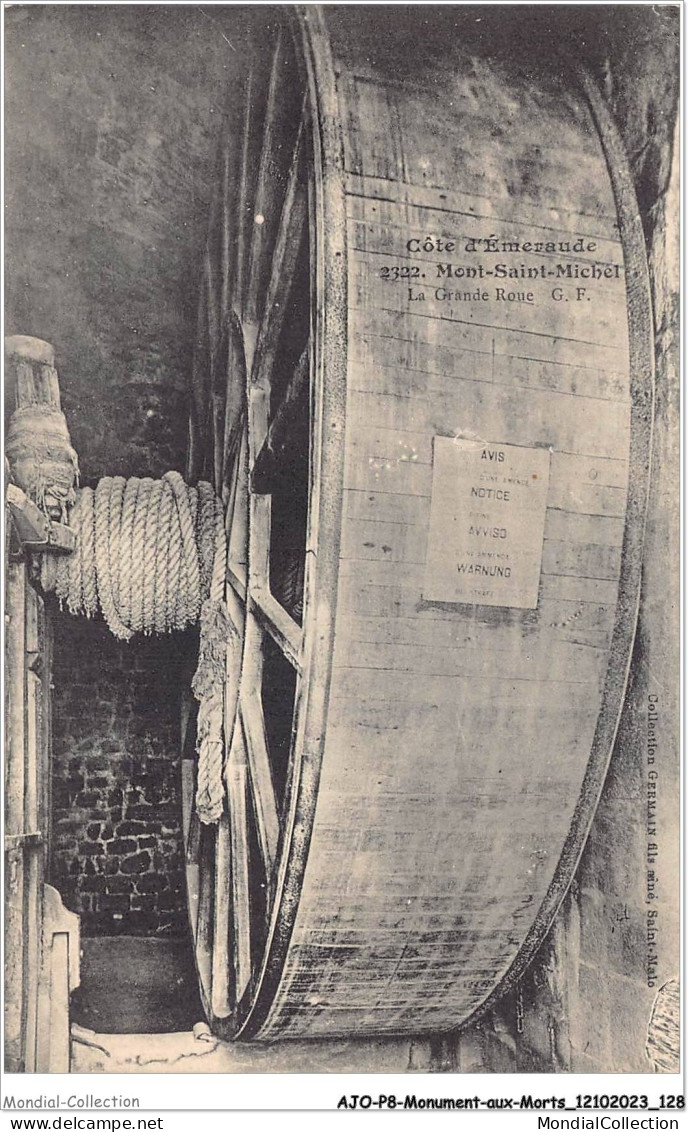 Côte d'Émeraude
2322. Mont-Saint-Michel
La Grande Roue G. F.
AVIS
D'UNE AMENDE
NOTICE
AVVISO
D'UNE AMMENDE
WARNUNG
Collection GERMAIN fils aîné, Saint-Malo
Mondial-Collection
AJO-P8-Monument-aux-Morts_12102023_128
MondialCollection